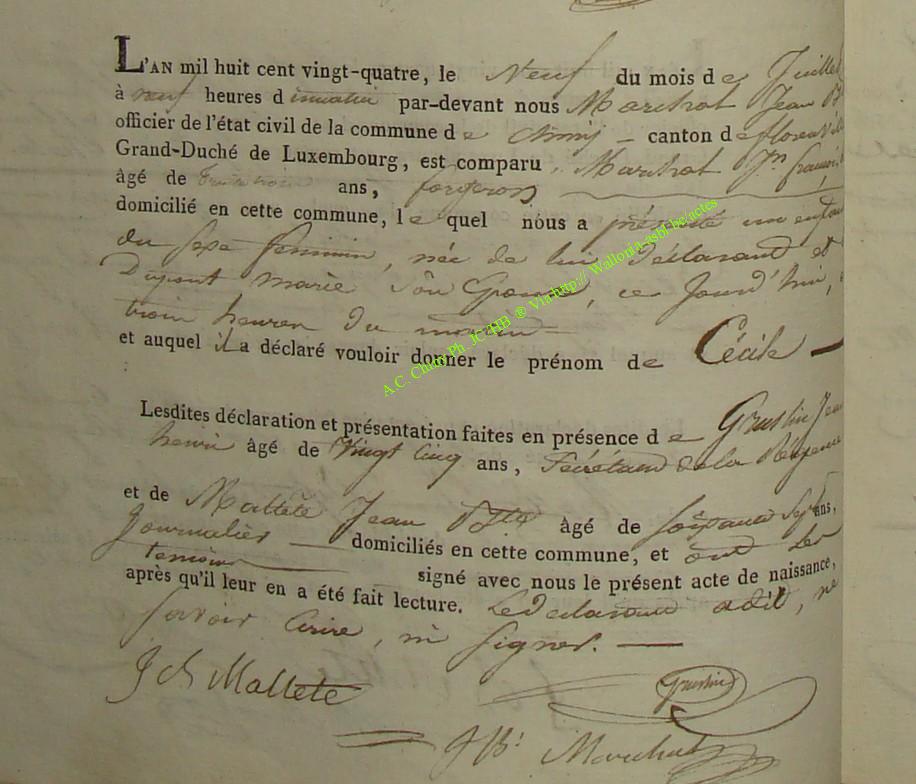 L'AN mil huit cent vingt-quatre, le Neuf du mois de Juillet
à neuf heures du matin par-devant nous Marchot Jean B
officier de l'état civil de la commune de Chiny canton de florenvil
Grand-Duché de Luxembourg, est comparu, Marchot Jn françois
âgé de trente trois ans, forgeron
domicilié en cette commune, lequel nous a présenté un enfan
du sexe feminin, née de lui Déclarant, et
Dupont marie Son Epouse, ce Jourd'hui,
trois heures du matin
et auquel il a déclaré vouloir donner le prénom de Cécile
Lesdites déclaration et présentation faites en présence de Grustin Jean
henri âgé de Vingt Cinq ans, Sécrétaire de la Régence
et de Mallète Jean Bte âgé de Soixante Sept ans,
Journalier domiciliés en cette commune, et ont les
temoins signé avec nous le présent acte de naissance,
après qu'il leur en a été fait lecture. Le declarant a dit, ne
Savoir écrire, ni Signer.
J B Mallete
Grustin
J B: Marchot
A.C. Chiny Ph. JC HB ® Via-http://Wallonia-asbl-be/actes